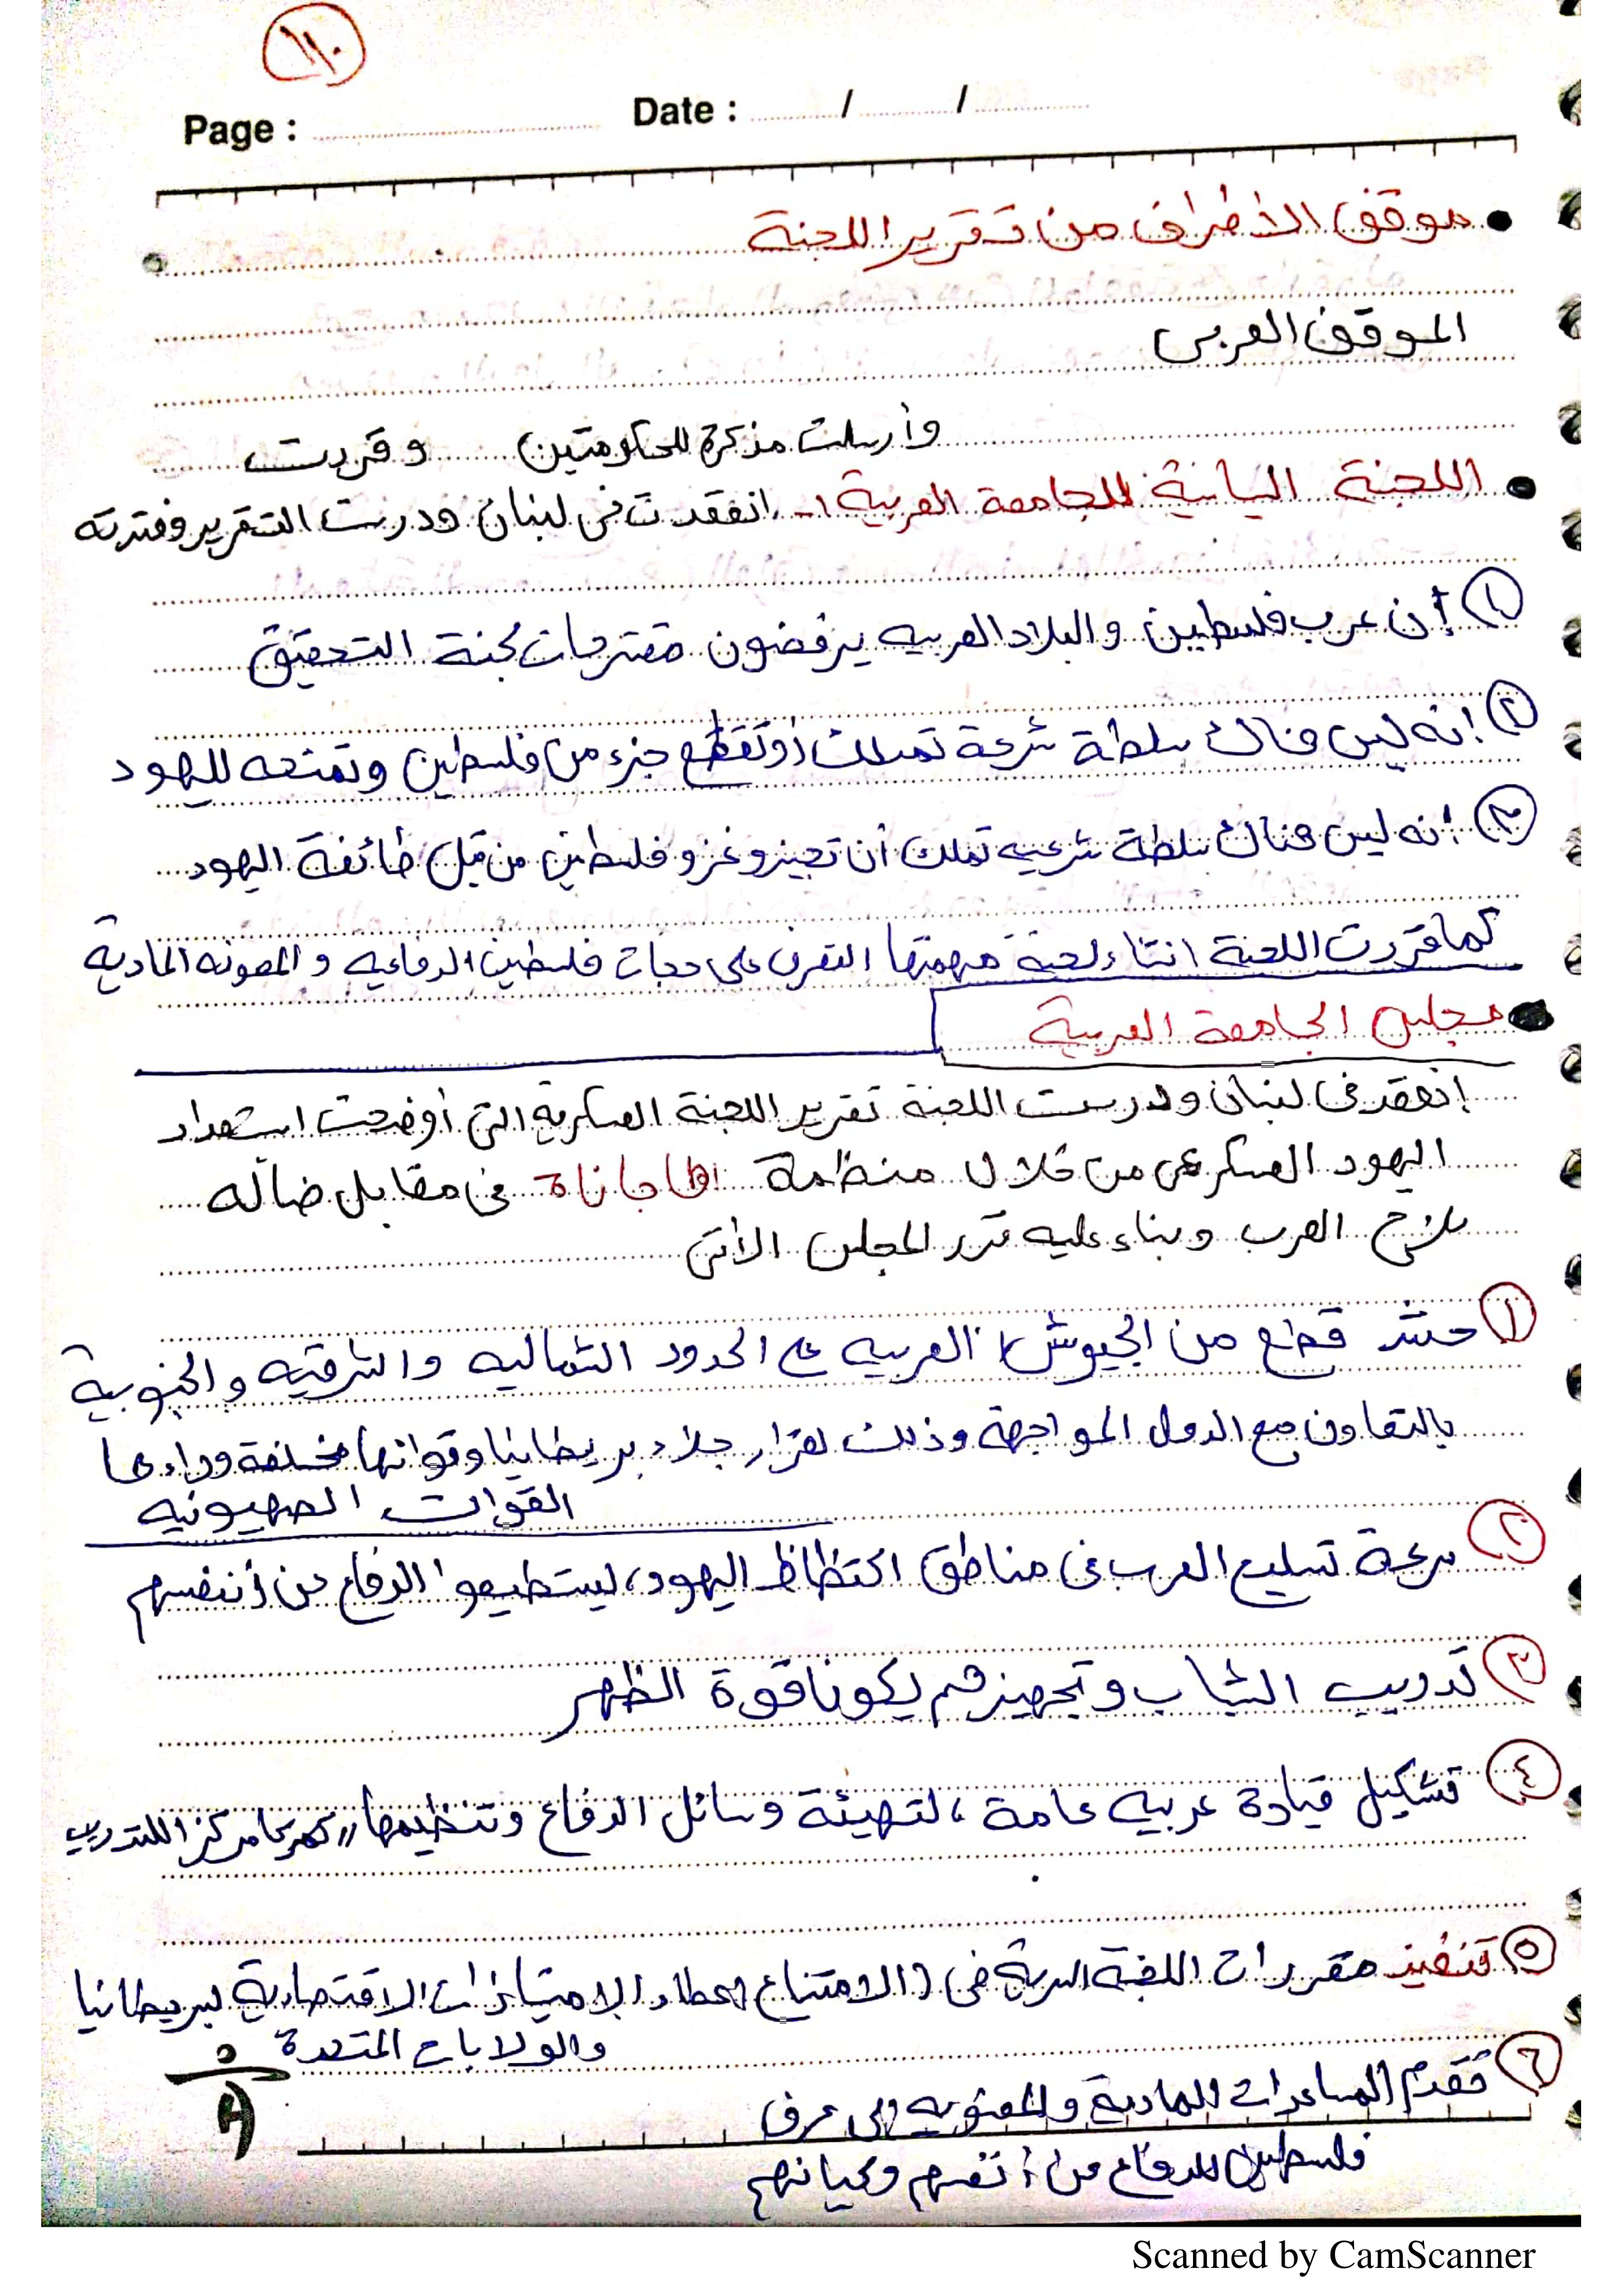 ١١٠
Page : Date : / /
موقف الأطراف من تقرير اللجنة
الموقف العربى
وأرسلت مذكرة للحكومتين وقررت
اللجنة السياسية للجامعة العربية :- انعقدت فى لبنان ودرست التقرير وفندته
١ إن عرب فلسطين والبلاد العربيه يرفضون مقترحات لجنة التحقيق
٢ إنه ليس هناك سلطة شرعية تمتلك أو تقطع جزء من فلسطين وتمنحه لليهود
٣ انه ليس هناك سلطة شرعيه تملك أن تجيز وغزو فلسطين من قبل طائفة اليهود
كما قررت اللجنة انشاء لجنة مهمتها التعرف على حجات فلسطين الدفاعيه والمعونه المادية
مجلس الجامعة العربية
إنعقد فى لبنان ودرست اللجنة تقرير اللجنة العسكرية التى أوضحت استعداد
اليهود العسكرى من خلال منظمة الهاجاناة فى مقابل ضاله
سلاح العرب وبناء عليه قرر المجلس الأتى
١ حشد قطع من الجيوش العربيه على الحدود الشماليه والشرقيه والجنوبية
بالتعاون مع الدول المواجهة وذلك لقرار جلاء بريطانيا وقواتها مخلفة وراءها
القوات الصهيونيه
٢ سرعة تسليح العرب فى مناطق اكتظاظ اليهود، ليستطيعوا الدفاع عن أنفسهم
٣ تدريب الشباب وتجهيزهم ليكونا قوة الظهر
٤ تشكيل قيادة عربيه عامة، لتهيئة وسائل الدفاع وتنظيمها، مركزا للتدريب
٥ تنفيذ مقررات اللجنة السرية فى (الامتناع إعطاء الامتيازات الاقتصادية لبريطانيا
والولايات المتحدة
٦ تقدم المساعدات المادية والمعنويه إلى عرب
فلسطين للدفاع عن أنفسهم وكيانهم
Scanned by CamScanner